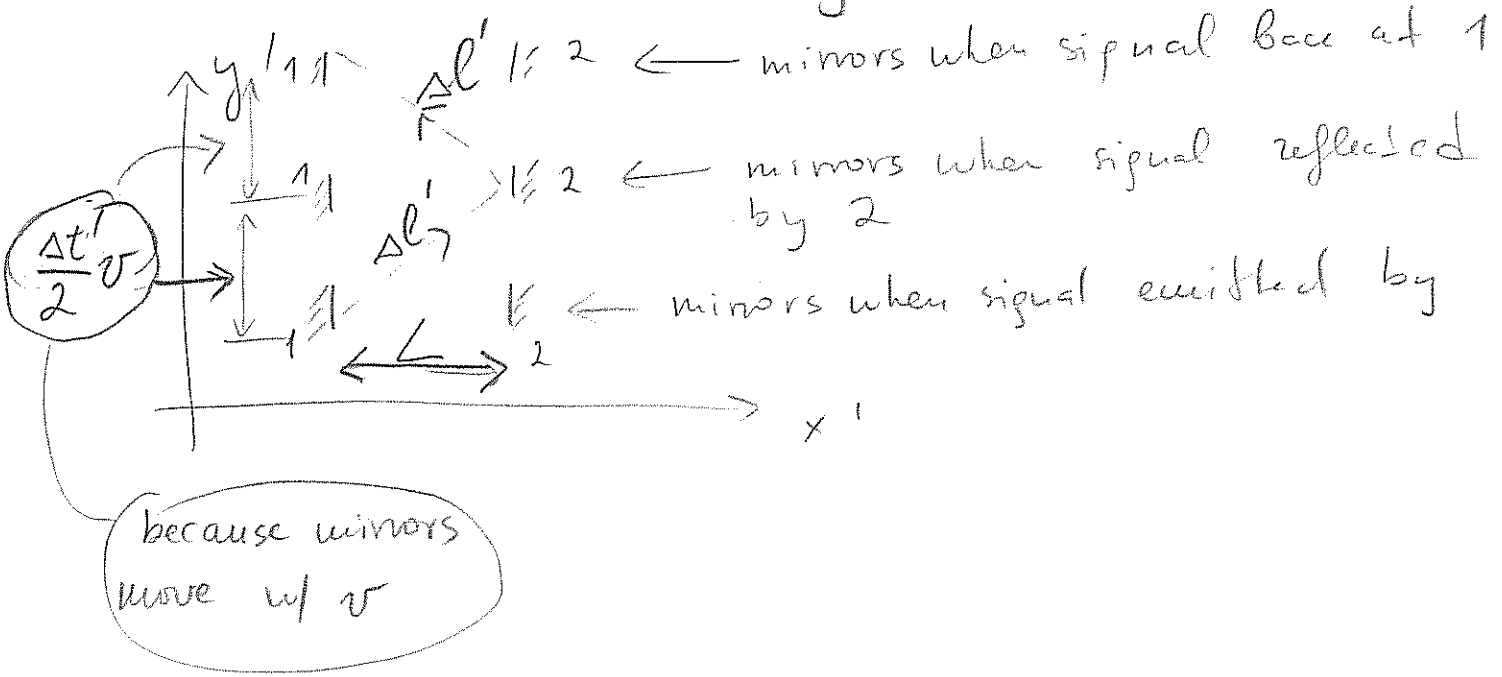 y' 1 Δl' 2 ← mirrors when signal back at 1
1 2 ← mirrors when signal reflected
by 2
Δt'/2 v Δl'
← mirrors when signal emitted by
1 L 2
x'
because mirrors
move w/ v